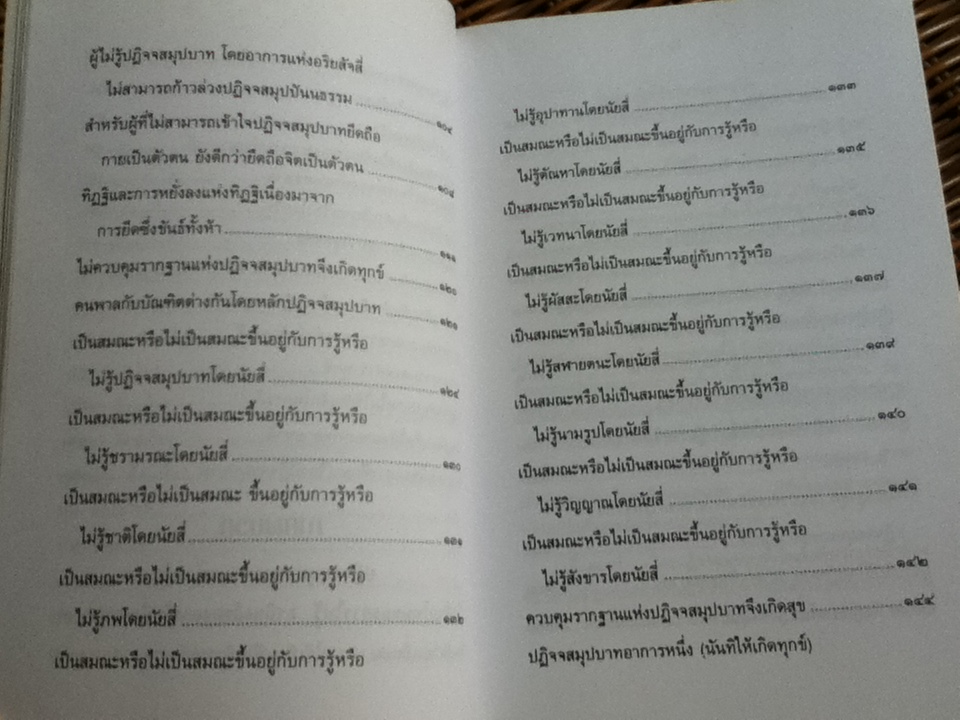 ผู้ไม่รู้ปฏิจจสมุปบาท โดยอาการแห่งอริยสัจสี่
ไม่สามารถก้าวล่วงปฏิจจสมุปปันนธรรม
สำหรับผู้ที่ไม่สามารถเข้าใจปฏิจจสมุปบาทยึดถือ
กายเป็นตัวตน ยังดีกว่ายึดถือจิตเป็นตัวตน
ทิฏฐิและการหยั่งลงแห่งทิฏฐิเนื่องมาจาก
การยึดซึ่งขันธ์ทั้งห้า
ไม่ควบคุมรากฐานแห่งปฏิจจสมุปบาทจึงเกิดทุกข์ ๑๒๐
คนพาลกับบัณฑิตต่างกันโดยหลักปฏิจจสมุปบาท ๑๒๑
เป็นสมณะหรือไม่เป็นสมณะขึ้นอยู่กับการรู้หรือ
ไม่รู้ปฏิจจสมุปบาทโดยนัยสี่ ๑๒๔
เป็นสมณะหรือไม่เป็นสมณะขึ้นอยู่กับการรู้หรือ
ไม่รู้ชรามรณะโดยนัยสี่ ๑๓๐
เป็นสมณะหรือไม่เป็นสมณะ ขึ้นอยู่กับการรู้หรือ
ไม่รู้ชาติโดยนัยสี่ ๑๓๑
เป็นสมณะหรือไม่เป็นสมณะขึ้นอยู่กับการรู้หรือ
ไม่รู้ภพโดยนัยสี่ ๑๓๒
เป็นสมณะหรือไม่เป็นสมณะขึ้นอยู่กับการรู้หรือ
ไม่รู้อุปาทานโดยนัยสี่ ๑๓๓
เป็นสมณะหรือไม่เป็นสมณะขึ้นอยู่กับการรู้หรือ
ไม่รู้ตัณหาโดยนัยสี่ ๑๓๕
เป็นสมณะหรือไม่เป็นสมณะขึ้นอยู่กับการรู้หรือ
ไม่รู้เวทนาโดยนัยสี่ ๑๓๖
เป็นสมณะหรือไม่เป็นสมณะขึ้นอยู่กับการรู้หรือ
ไม่รู้ผัสสะโดยนัยสี่ ๑๓๗
เป็นสมณะหรือไม่เป็นสมณะขึ้นอยู่กับการรู้หรือ
ไม่รู้สฬายตนะโดยนัยสี่ ๑๓๙
เป็นสมณะหรือไม่เป็นสมณะขึ้นอยู่กับการรู้หรือ
ไม่รู้นามรูปโดยนัยสี่ ๑๔๐
เป็นสมณะหรือไม่เป็นสมณะขึ้นอยู่กับการรู้หรือ
ไม่รู้วิญญาณโดยนัยสี่ ๑๔๑
เป็นสมณะหรือไม่เป็นสมณะขึ้นอยู่กับการรู้หรือ
ไม่รู้สังขารโดยนัยสี่ ๑๔๒
ควบคุมรากฐานแห่งปฏิจจสมุปบาทจึงเกิดสุข ๑๔๔
ปฏิจจสมุปบาทอาการหนึ่ง (นันทิให้เกิดทุกข์)